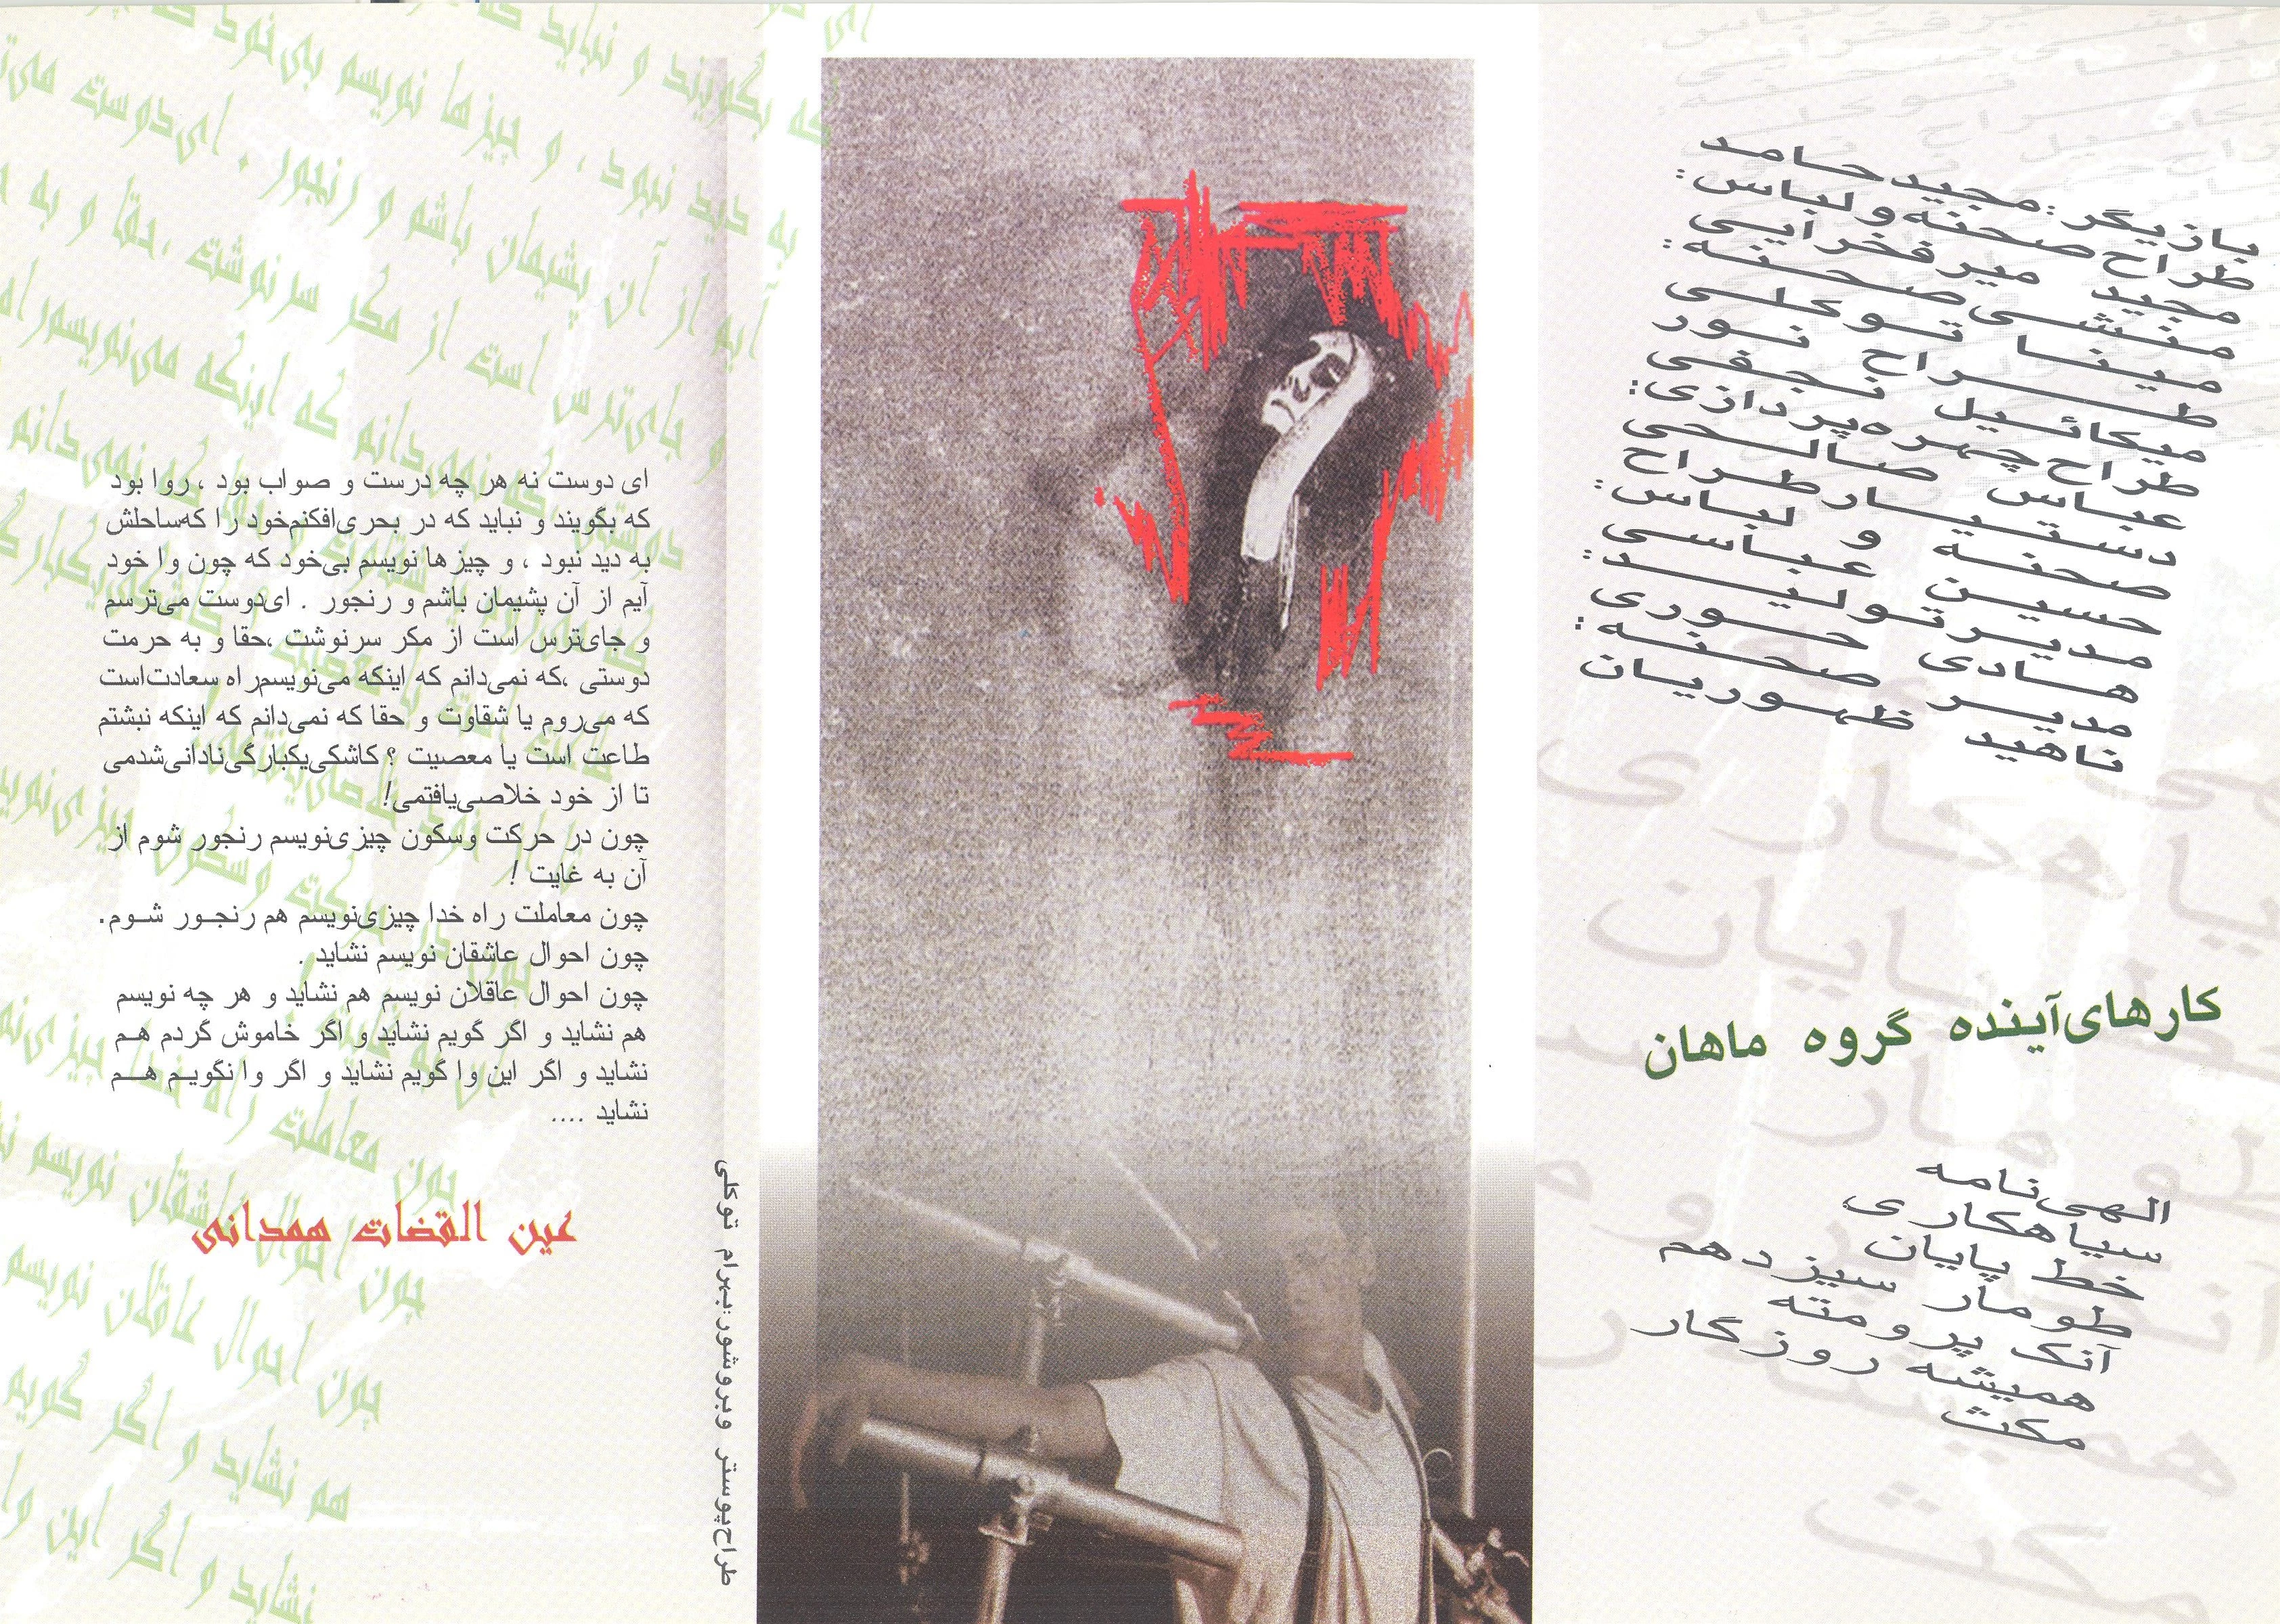 بازیگر: مجید حامد
طراح صحنه و لباس:
مجید میرفخرایی
منشی صحنه:
مینا توکلی
طراح نور
میکائیل نجفی
طراح چهره‌پردازی:
عباس صالحی
دستیار طراح
صحنه و لباس:
حسین عباسی
مدیر تولید:
هادی حوری
مدیر صحنه:
ناهید ظهوریان
کارهای‌آینده گروه ماهان
الهی‌نامه
سیاهکاری
خط پایان
طومار سیزدهم
آنک پرومته
همیشه روزگار
مکث
طراح‌پوستر وبروشور:بهرام توکلی
ای دوست نه هر چه درست و صواب بود ، روا بود
که بگویند و نباید که در بحری‌افکنم‌خود را که‌ساحلش
به دید نبود ، و چیزها نویسم بی‌خود که چون وا خود
آیم از آن پشیمان باشم و رنجور . ای‌دوست می‌ترسم
و جای‌ترس است از مکر سرنوشت ،حقا و به حرمت
دوستی ،که نمی‌دانم که اینکه می‌نویسم‌راه سعادت‌است
که می‌روم یا شقاوت و حقا که نمی‌دانم که اینکه نبشتم
طاعت است یا معصیت ؟ کاشکی‌یکبارگی‌نادانی‌شدمی
تا از خود خلاصی‌یافتمی!
چون در حرکت وسکون چیزی‌نویسم رنجور شوم از
آن به غایت !
چون معاملت راه خدا چیزی‌نویسم هم رنجور شوم.
چون احوال عاشقان نویسم نشاید .
چون احوال عاقلان نویسم هم نشاید و هر چه نویسم
هم نشاید و اگر گویم نشاید و اگر خاموش گردم هم
نشاید و اگر این وا گویم نشاید و اگر وا نگویم هم
نشاید ....
عین القضات همدانی